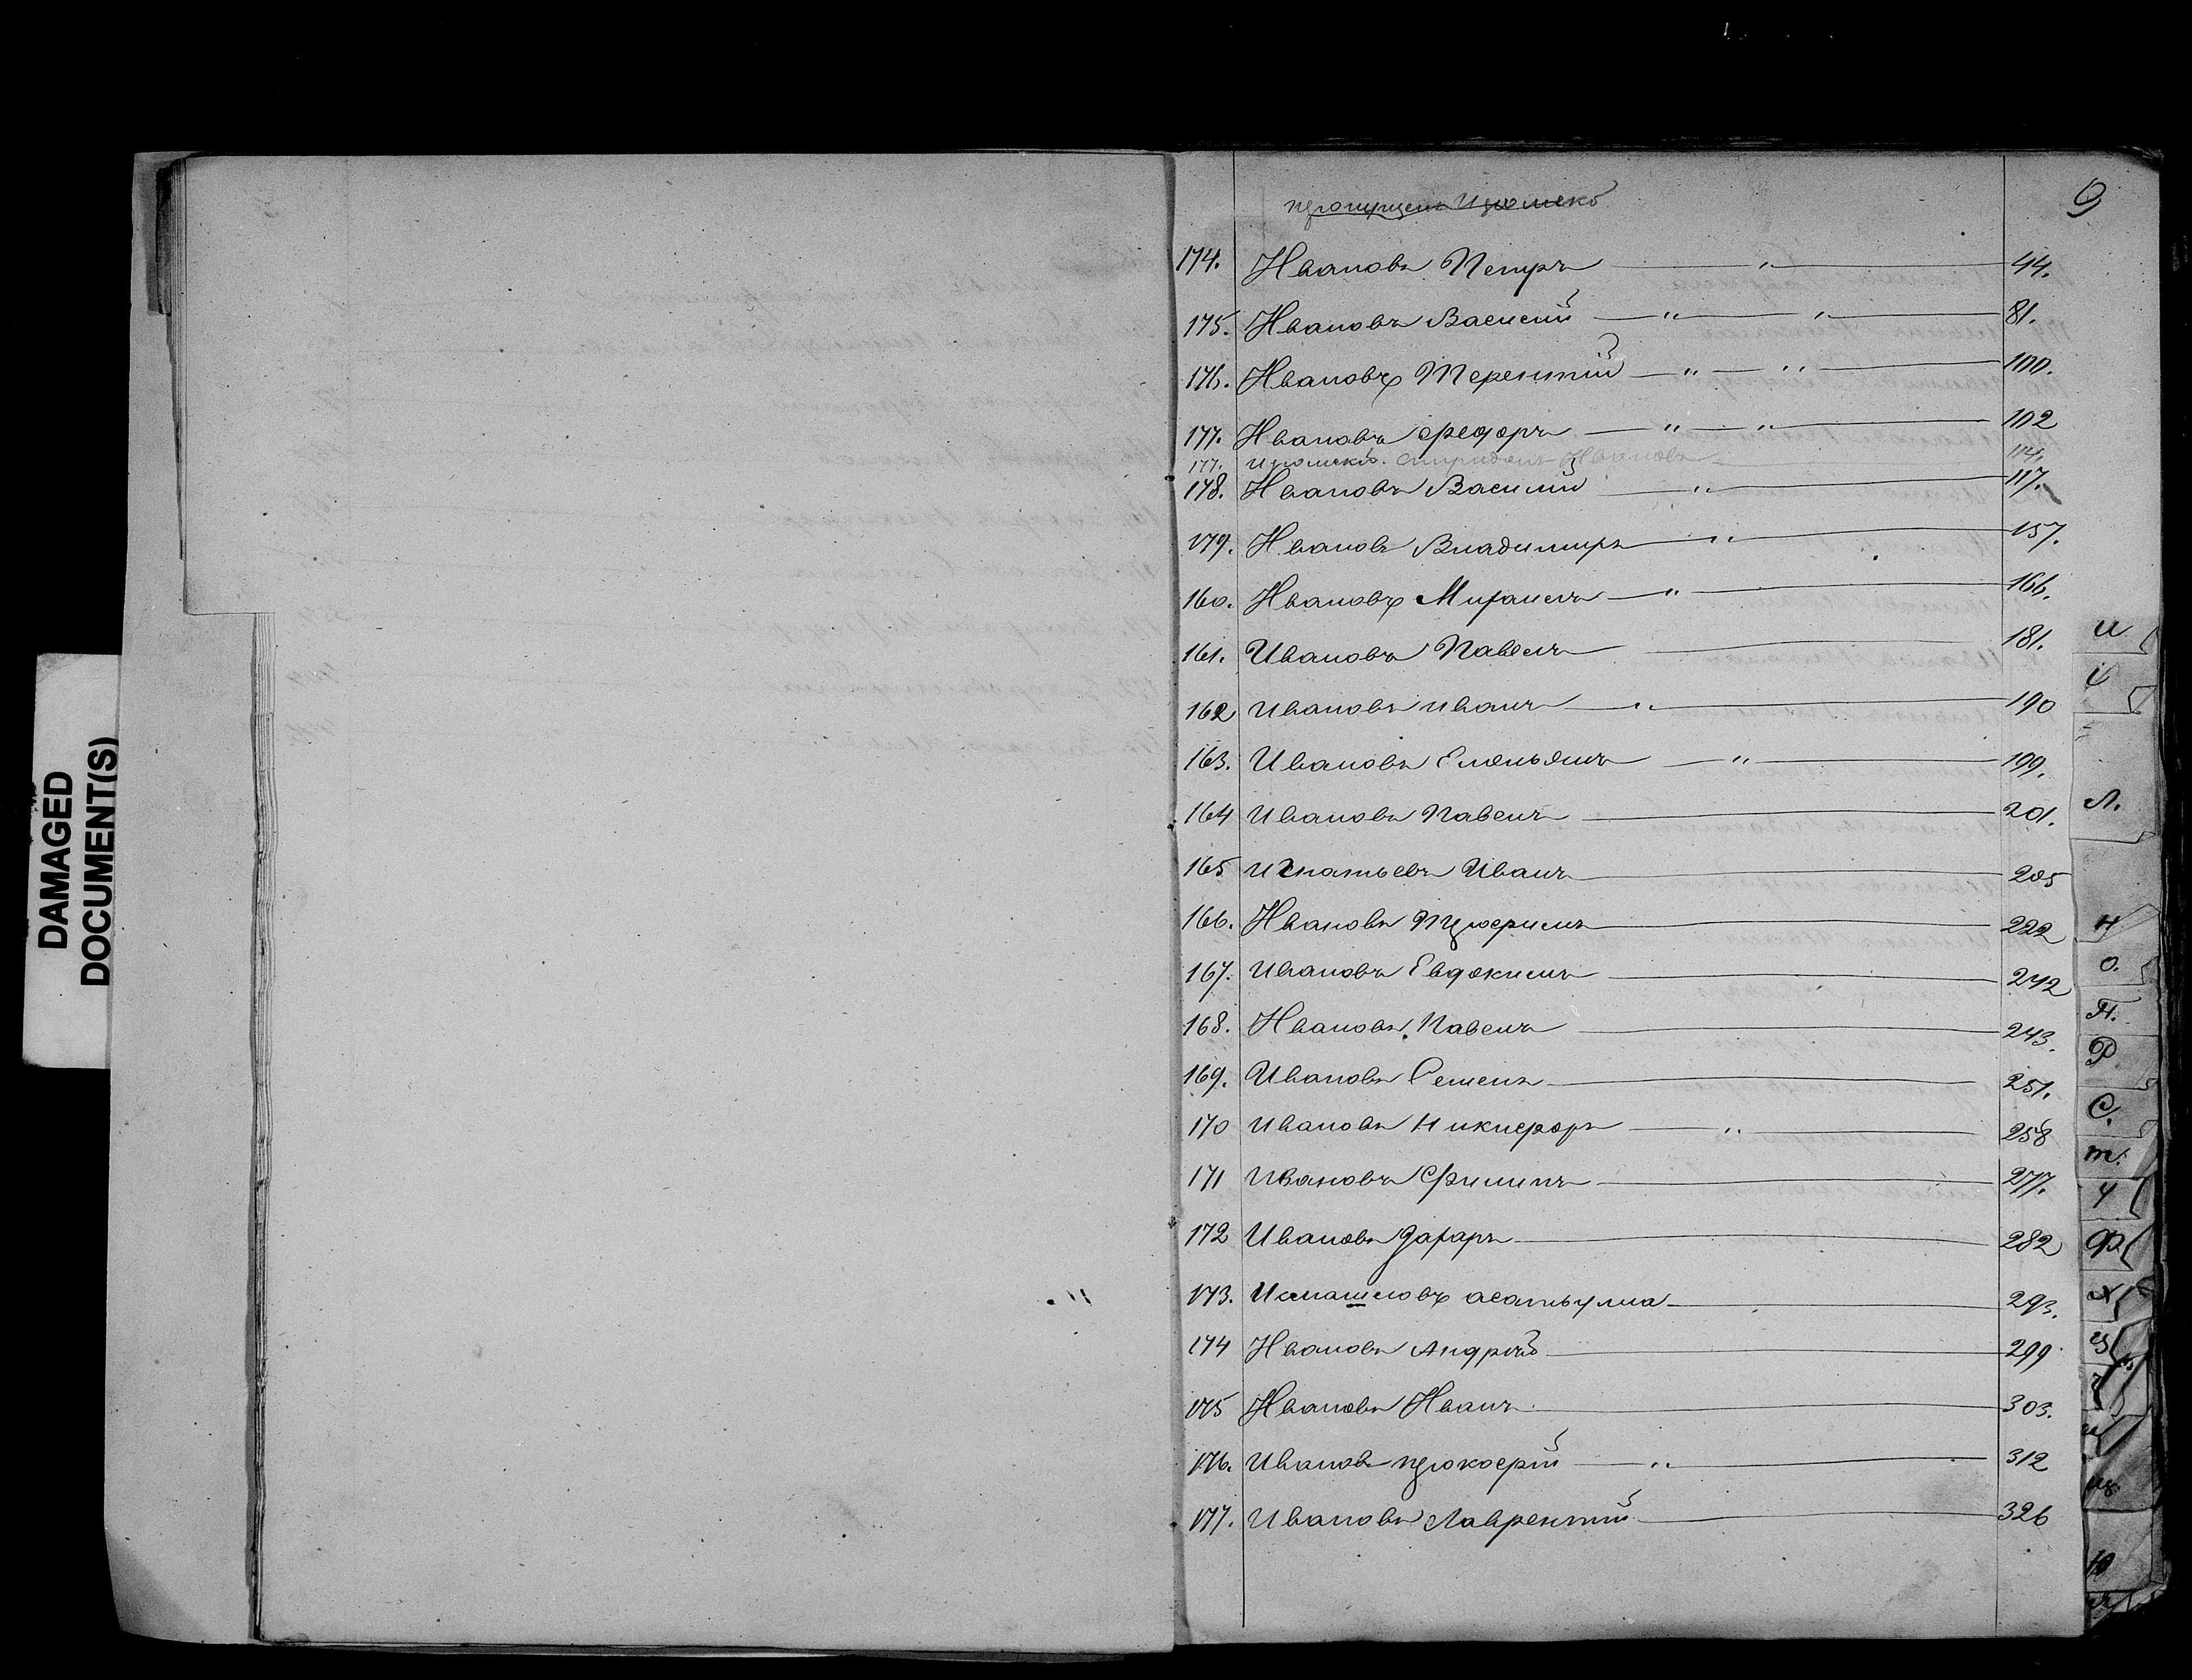 DAMAGED
DOCUMENT(S)
9
174. Ивановъ Петръ — " — 44.
175. Ивановъ Василий — " — " — 81.
176. Ивановъ Терентий — " — " — 100.
177. Ивановъ Федоръ — " — " — 102
177. Спиридонъ Ивановъ 114.
178. Ивановъ Василий — " — 117.
179. Ивановъ Владимиръ — " — 157.
160. Ивановъ Михаилъ — " — 166.
161. Ивановъ Павелъ — 181.
162 Ивановъ Иванъ — " — 190
163. Ивановъ Емельянъ — " — 199.
164 Ивановъ Павелъ — 201.
165 Игнатьевъ Иванъ — 205
166. Ивановъ Трофимъ — 222
167. Ивановъ Евдокимъ — 242
168. Ивановъ Павелъ — 243.
169. Ивановъ Семенъ — 251.
170 Ивановъ Никифоръ — " — 258
171 Ивановъ Филипъ — 277.
172 Ивановъ Захаръ — 282
173. 293.
174 Ивановъ Андрей — 299
175 Ивановъ Иванъ — 303.
176. Ивановъ Прокофий — " — 312
177. Ивановъ Лаврентий — 326
И
І
Л.
Н
О.
П.
Р
С.
Т.
У
Ф
Х
Ц
Ч
Ю